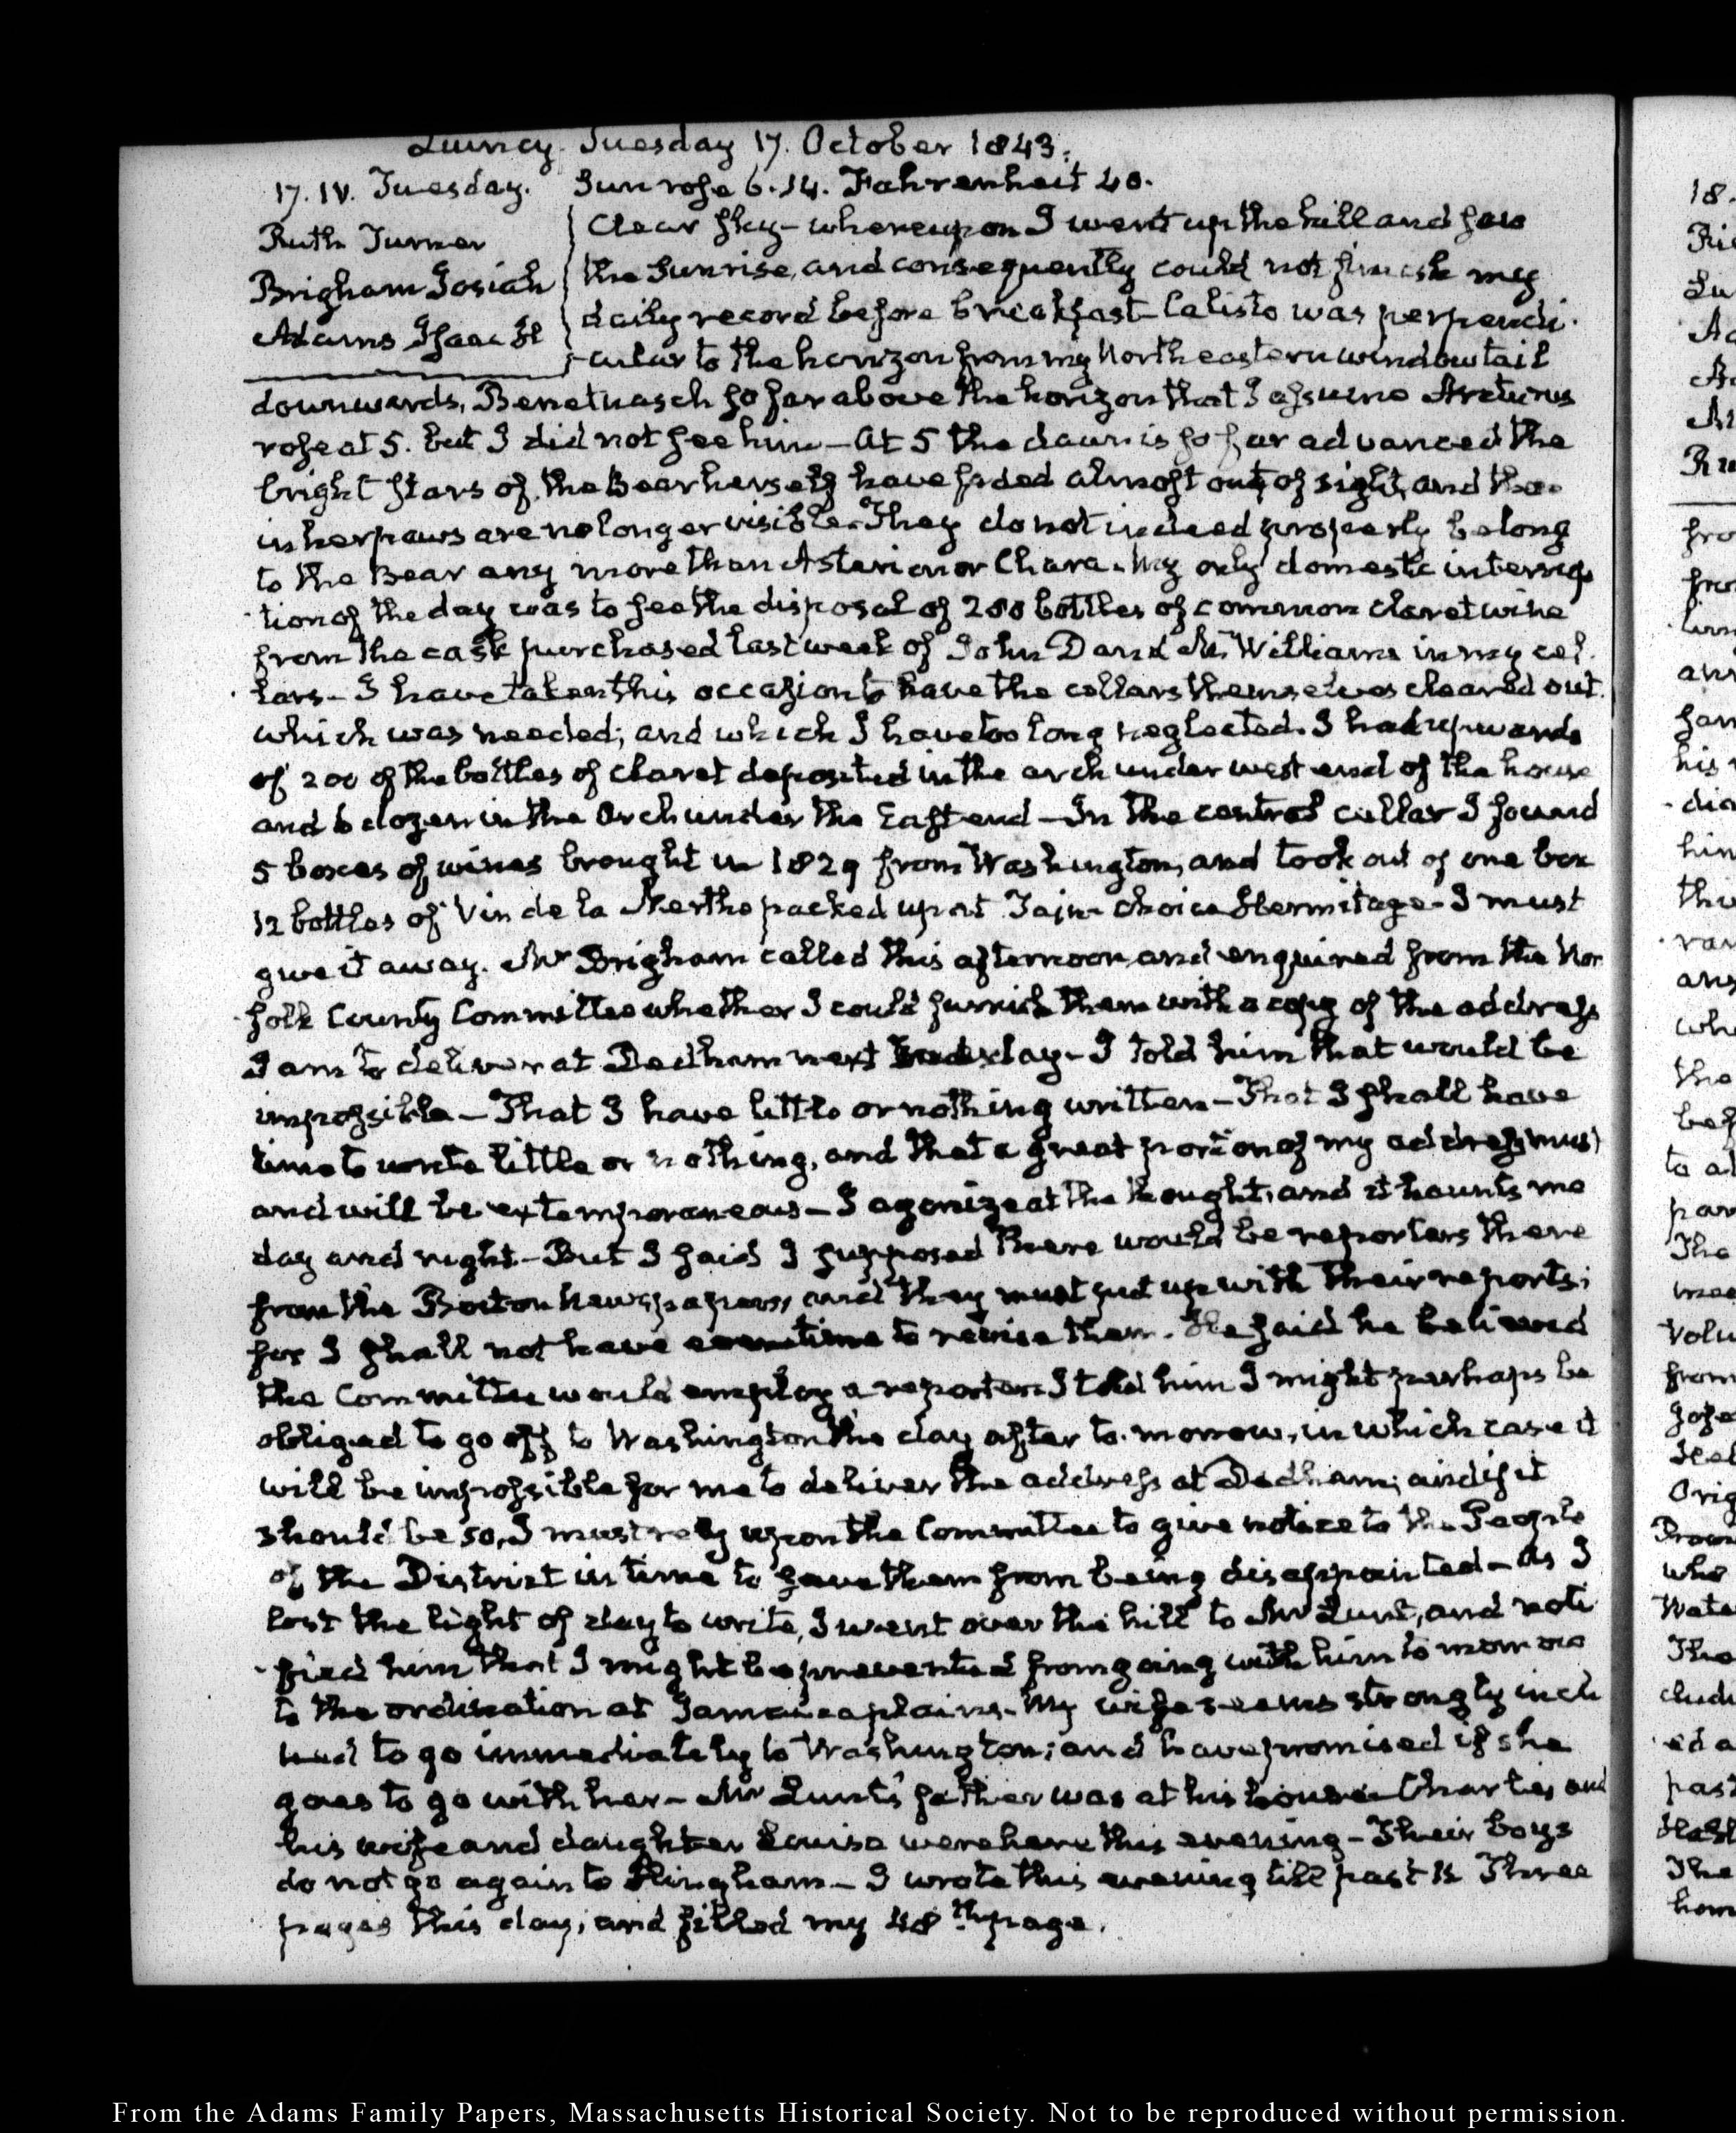 Quincy Tuesday 17. October 1843.
17. IV. Tuesday. Sun rose 6.14. Fahrenheit 40.
Ruth Turner
Brigham Josiah
Adams Isaac H
Clear sky – whereupon I went up the hill and saw
the Sunrise, and consequently could not finish my
daily record before breakfast – Calisto was perpendi-
-cular to the horizon from my North eastern window tail
downwards, Benetnasch so far above the horizon that I assume Arcturus
rose at 5. but I did not see him – At 5 the dawn is so far advanced the
bright stars of the Bear herself have faded almost out of sight, and those
in her paws are no longer visible. They do not indeed properly belong
to the Bear any more than Asterion or Chara. My only domestic interrup-
-tion of the day was to see the disposal of 280 bottles of common claret wine
from the cask purchased last week of John D and M. Williams in my cel-
-lars – I have taken this occasion to have the cellars themselves cleared out.
which was needed; and which I have too long neglected. I had upwards
of 200 of the bottles of claret deposited in the arch under west end of the house
and 6 dozen in the Arch under the East end – In the central cellar I found
5 boxes of wines brought in 1829 from Washington, and took out of one box
12 bottles of Vin de la Nerthe packed up at choice Hermitage – I must
give it away. Mr Brigham called this afternoon, and enquired from the Nor
-folk County Committee whether I could furnish them with a copy of the address
I am to deliver at Dedham next day – I told him that would be
impossible – That I have little or nothing written – That I shall have
time to write little or nothing, and that a great portion of my address must
and will be extemporaneous – I agonize at the thought, and it haunts me
day and night – But I said I supposed there would be reporters there
from the Boston newspapers, and they must put up with their reports;
for I shall not have even time to revise them. He said he believed
the Committee would employ a reporter. I told him I might perhaps be
obliged to go off to Washington the day after to-morrow, in which case it
will be impossible for me to deliver the address at Dedham; and if it
should be so, I must rely upon the Committee to give notice to the People
of the District in time to save them from being disappointed – As I
lost the light of day to write, I went over the hill to Mr Lunt, and noti-
-fied him that I might be prevented from going with him to morrow
to the ordination at Jamaica plains. My wife seems strongly incli
ned to go immediately to Washington; and have promised if she
goes to go with her – Mr Lunt's father was at his house – Charles and
his wife and daughter Louisa were here this evening – Their boys
do not go again to Hingham – I wrote this evening till past 11 Three
pages this day; and filled my 48th page.
18.
From the Adams Family Papers, Massachusetts Historical Society. Not to be reproduced without permission.